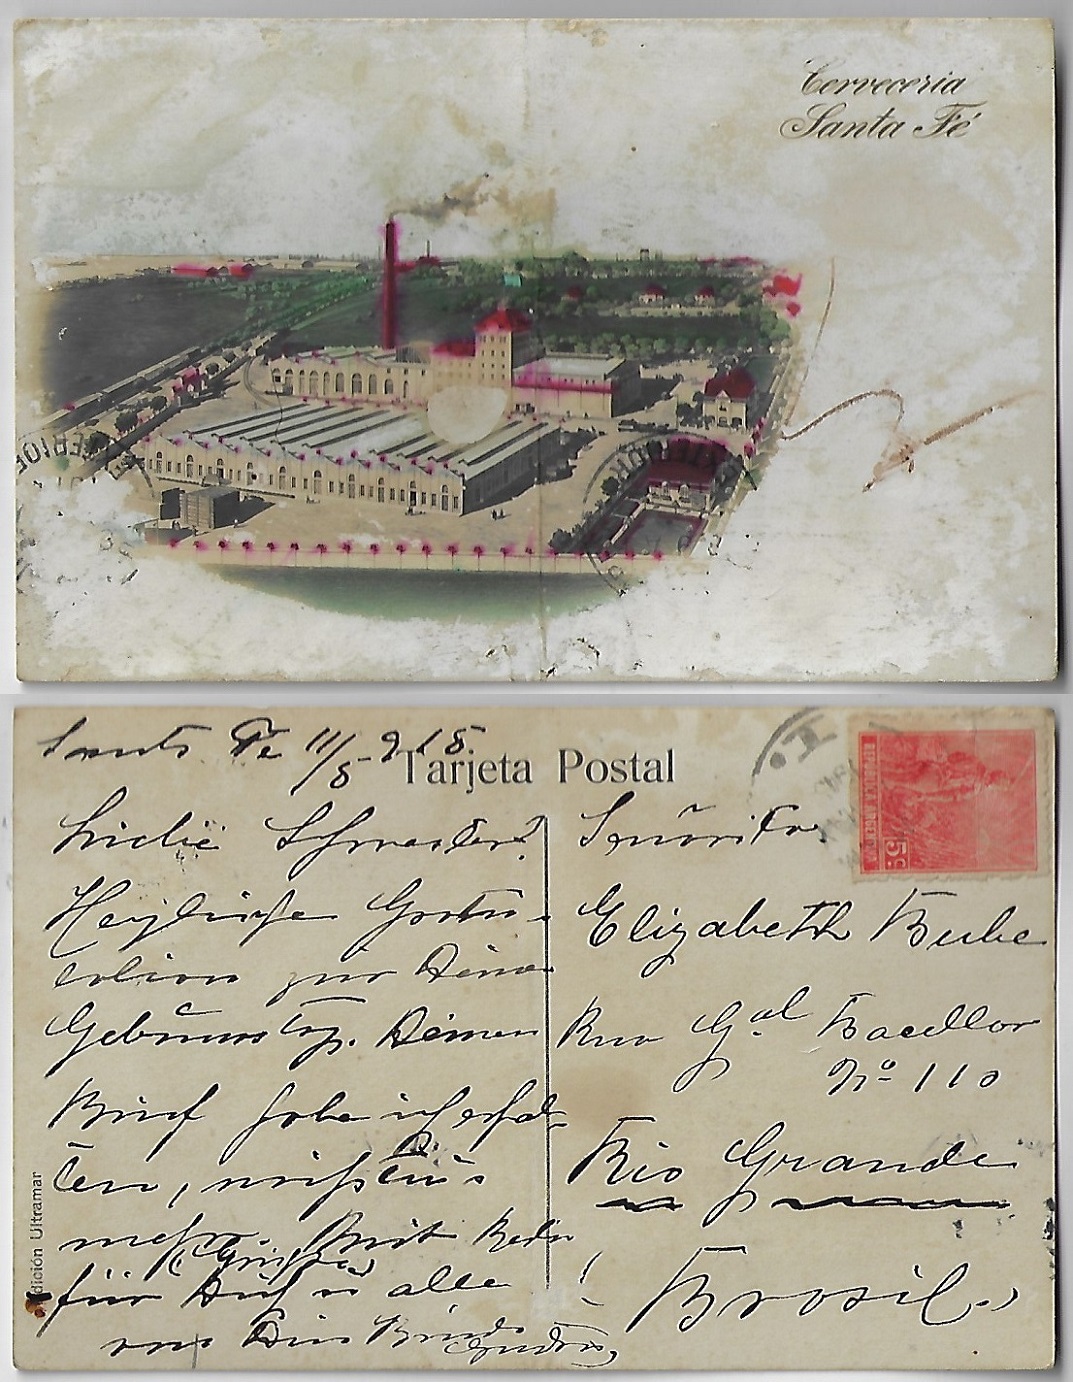 Cerveceria
Santa Fé
Santa Fe 11/5-915.
Tarjeta Postal
Liebe Schwester!
Herzliche Gratu-
lation zur Deinen
Geburtstag. Deinen
Brief habe ich erhal-
ten,
mehr. Mit
(Grüßen)
für Dich u alle
von Dein Bruder
Señorita
Elizabeth Bube
Rua Gal Bacellar
No 110
Rio Grande
Brasil
REPUBLICA ARGENTINA
5c.
Edición Ultramar